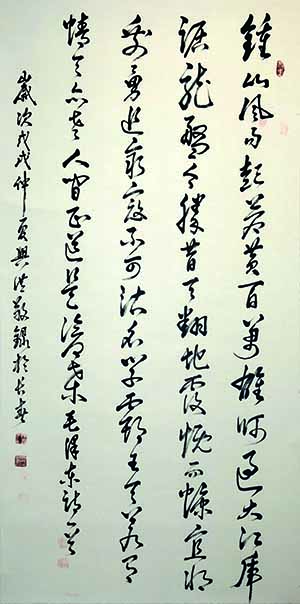 鍾山風雨起蒼黄百萬雄師過大江虎
踞龍盤今勝昔天翻地覆慨而慷宜将
剩勇追窮寇不可沽名学霸王天若有
情天亦老人间正道是滄桑毛澤东詩一首
歲次戊戌仲夏興洪敬錄於长春